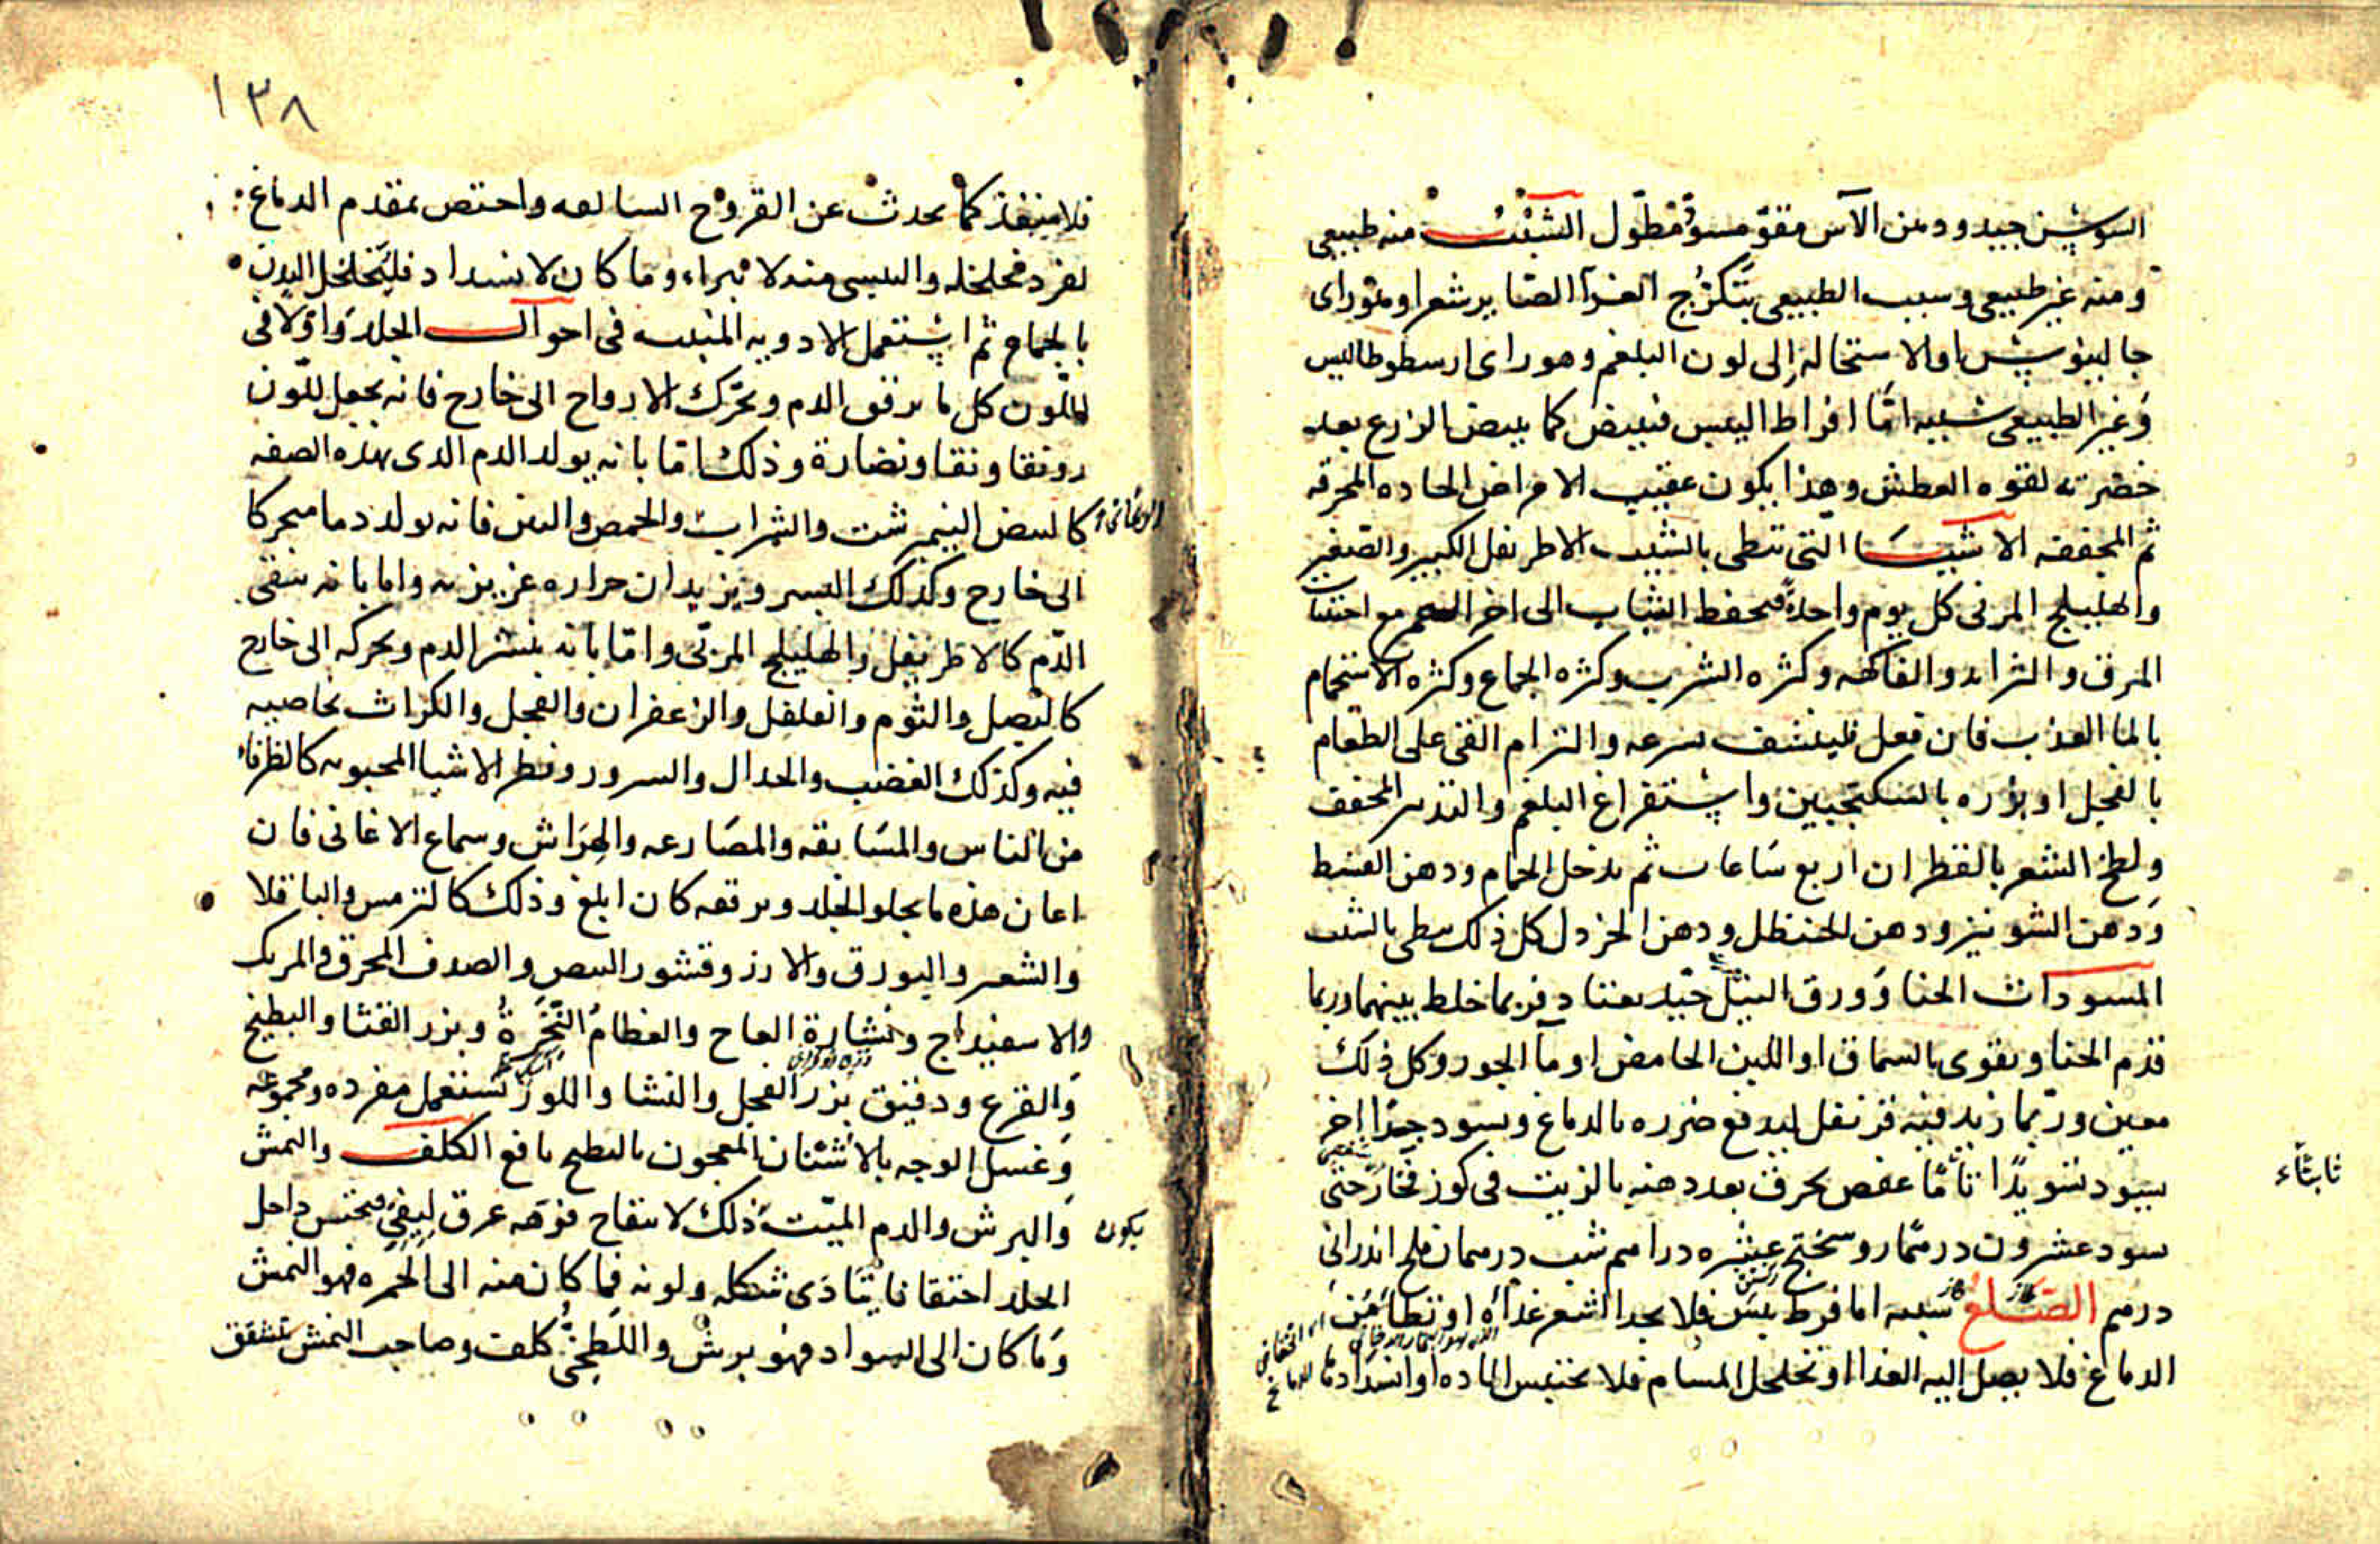 السوسن جيد ودهن الآس مقوّ مسوّد مطوّل الشيب منه طبيعى
ومنه غير طبيعى وسبب الطبيعى تكرّج الغذا الصاير شعرا وهو راى
جالينوس او الاستحاله إلى لون البلغم وهو راى ارسطوطاليس
وغير الطبيعى سببه امّا افراط اليبس فيبيض كما يبيض الزرع بعد
خضرته لقوه العطش وهذا يكون عقيب الامراض الحاده المحرقه
ثم المجففه الاشيا التى تبطى بالشيب الاطريفل الكبير والصغير
والهليلج المربى كل يوم واحدة تحفظ الشباب الى اخر العمر مع اجتناب
المرق والثرايد والفاكهه وكثره الشرب وكثره الجماع وكثره الاستحمام
بالما العذب فان فعل فلينشف بسرعه والتزام القى على الطعام
بالفجل او بزره بالسكنجبين واستفراغ البلغم والتدبير المجفف
ولطخ الشعر بالقطران اربع ساعات ثم يدخل الحمام ودهن القسط
ودهن الشونيز ودهن الحنظل ودهن الخردل كل ذلك يبطى بالشيب
المسودات الحنا وورق النيل جيّد معتاد فربما خلط بينهما وربما
قدم الحنا ويقوى بالسماق او اللبن الحامض او مآ الجوز وكل ذلك
معين وربّما زيد فيه قرنفل ليدفع ضرره بالدماغ ويسود جيدا اخر
يسود تسويدًا تامًا عفص يحرق بعد دهنه بالزيت فى كوز فخار حتى
ثابتًاء
يسود عشرون درهمًا روسختج عشره دراهم شب درهمان ملح اندرانى
درهم الصلع سببه اما فرط يبس فلا يجد الشعر غذآه او تطامن
الدماغ فلا يصل إليه الغذا او تخلخل المسام فلا تحتبس الماده او انسدادها
١٣٨
فلا منفذ كما يحدث عن القروح السالفه واختص بمقدم الدماغ
لفرد تخلخله واليبسى منه لا يبراء وما كان لانسداد فليتخلخل البدن
بالحمام ثم استعمل الادويه المنبته فى احوال الجلد واوّلا فى
اللّون كل ما يرقق الدم ويحرّك الارواح الى خارج فانه يجعل للّون
رونقا ونقا ونضارة وذلك امّا بانه يولد الدم الذى بهذه الصفه
كالبيض النيمرشت والشراب والحمص والتين فانه يولد دما متحركا
الى خارج وكذلك البسر ويزيد ان حراره غريزيه واما بانه ينقى
الدّم كالاطريفل والهليلج المربّى وامّا بانه ينشر الدم ويحركه الى خارج
كالبصل والثوم والفلفل والزعفران والفجل والكراث بخاصيه
فيه وكذلك الغضب والجدال والسرور ونظر الاشيا المحبوبه كالظرفا
من الناس والمسابقه والمصارعه والهراش وسماع الاغانى فان
اعان هذه ما يجلو الجلد ويرققه كان ابلغ وذلك كالترمس والباقلا
والشعير والبورق والارز وقشور البيض والصدف المحرق والمرتك
والاسفيداج ونشارة العاج والعظام النّخرة وبزر القثا والبطيخ
والقرع ودقيق بزر الفجل والنشا واللوز تستعمل مفرده ومجموعه
وغسل الوجه بالاشنان المعجون بالبطيخ نافع الكلف والنمش
والبرش والدم الميّت ذلك لانفتاح فوهه عرق ليفىّ فتحتبس داخل
يكون
الجلد احتقانا يتادى شكله ولونه فما كان منه الى الحمره فهو النمش
وما كان الى السواد فهو برش واللطخىّ كلف وصاحب النمش تتشقق